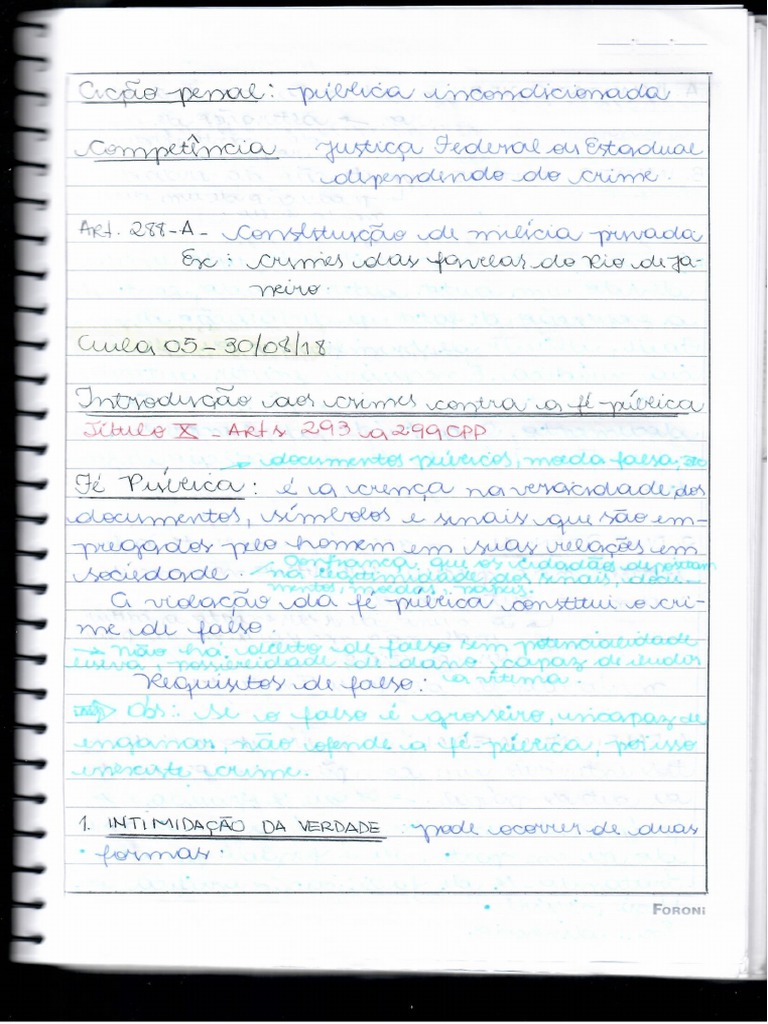 Ação penal: pública incondicionada
Competência Justiça Federal ou Estadual
dependendo do crime.
Art. 288-A - Constituição de milícia privada
Ex: crimes das favelas do Rio de Ja-
neiro.
Aula 05 - 30/08/18
Introdução aos crimes contra a fé-pública
Título X - Arts 293 a 299 CPP
→ documentos públicos, moeda falsa, etc
Fé Pública: é a crença na veracidade dos
documentos, símbolos e sinais que são em-
pregados pelo homem em suas relações em
sociedade.
Confiança que os cidadãos depositam
na legitimidade dos sinais, docu-
mentos, moedas, papéis.
A violação da fé-pública constitui o cri-
me de falso.
→ não há delito de falso sem potencialidade
lesiva, possibilidade de dano, capaz de iludir
a vítima.
Requisitos de falso:
Obs: se o falso é grosseiro, incapaz de
enganar, não ofende a fé-pública, por isso
inexiste crime.
1. INTIMIDAÇÃO DA VERDADE: pode ocorrer de duas
formas.
FORONI